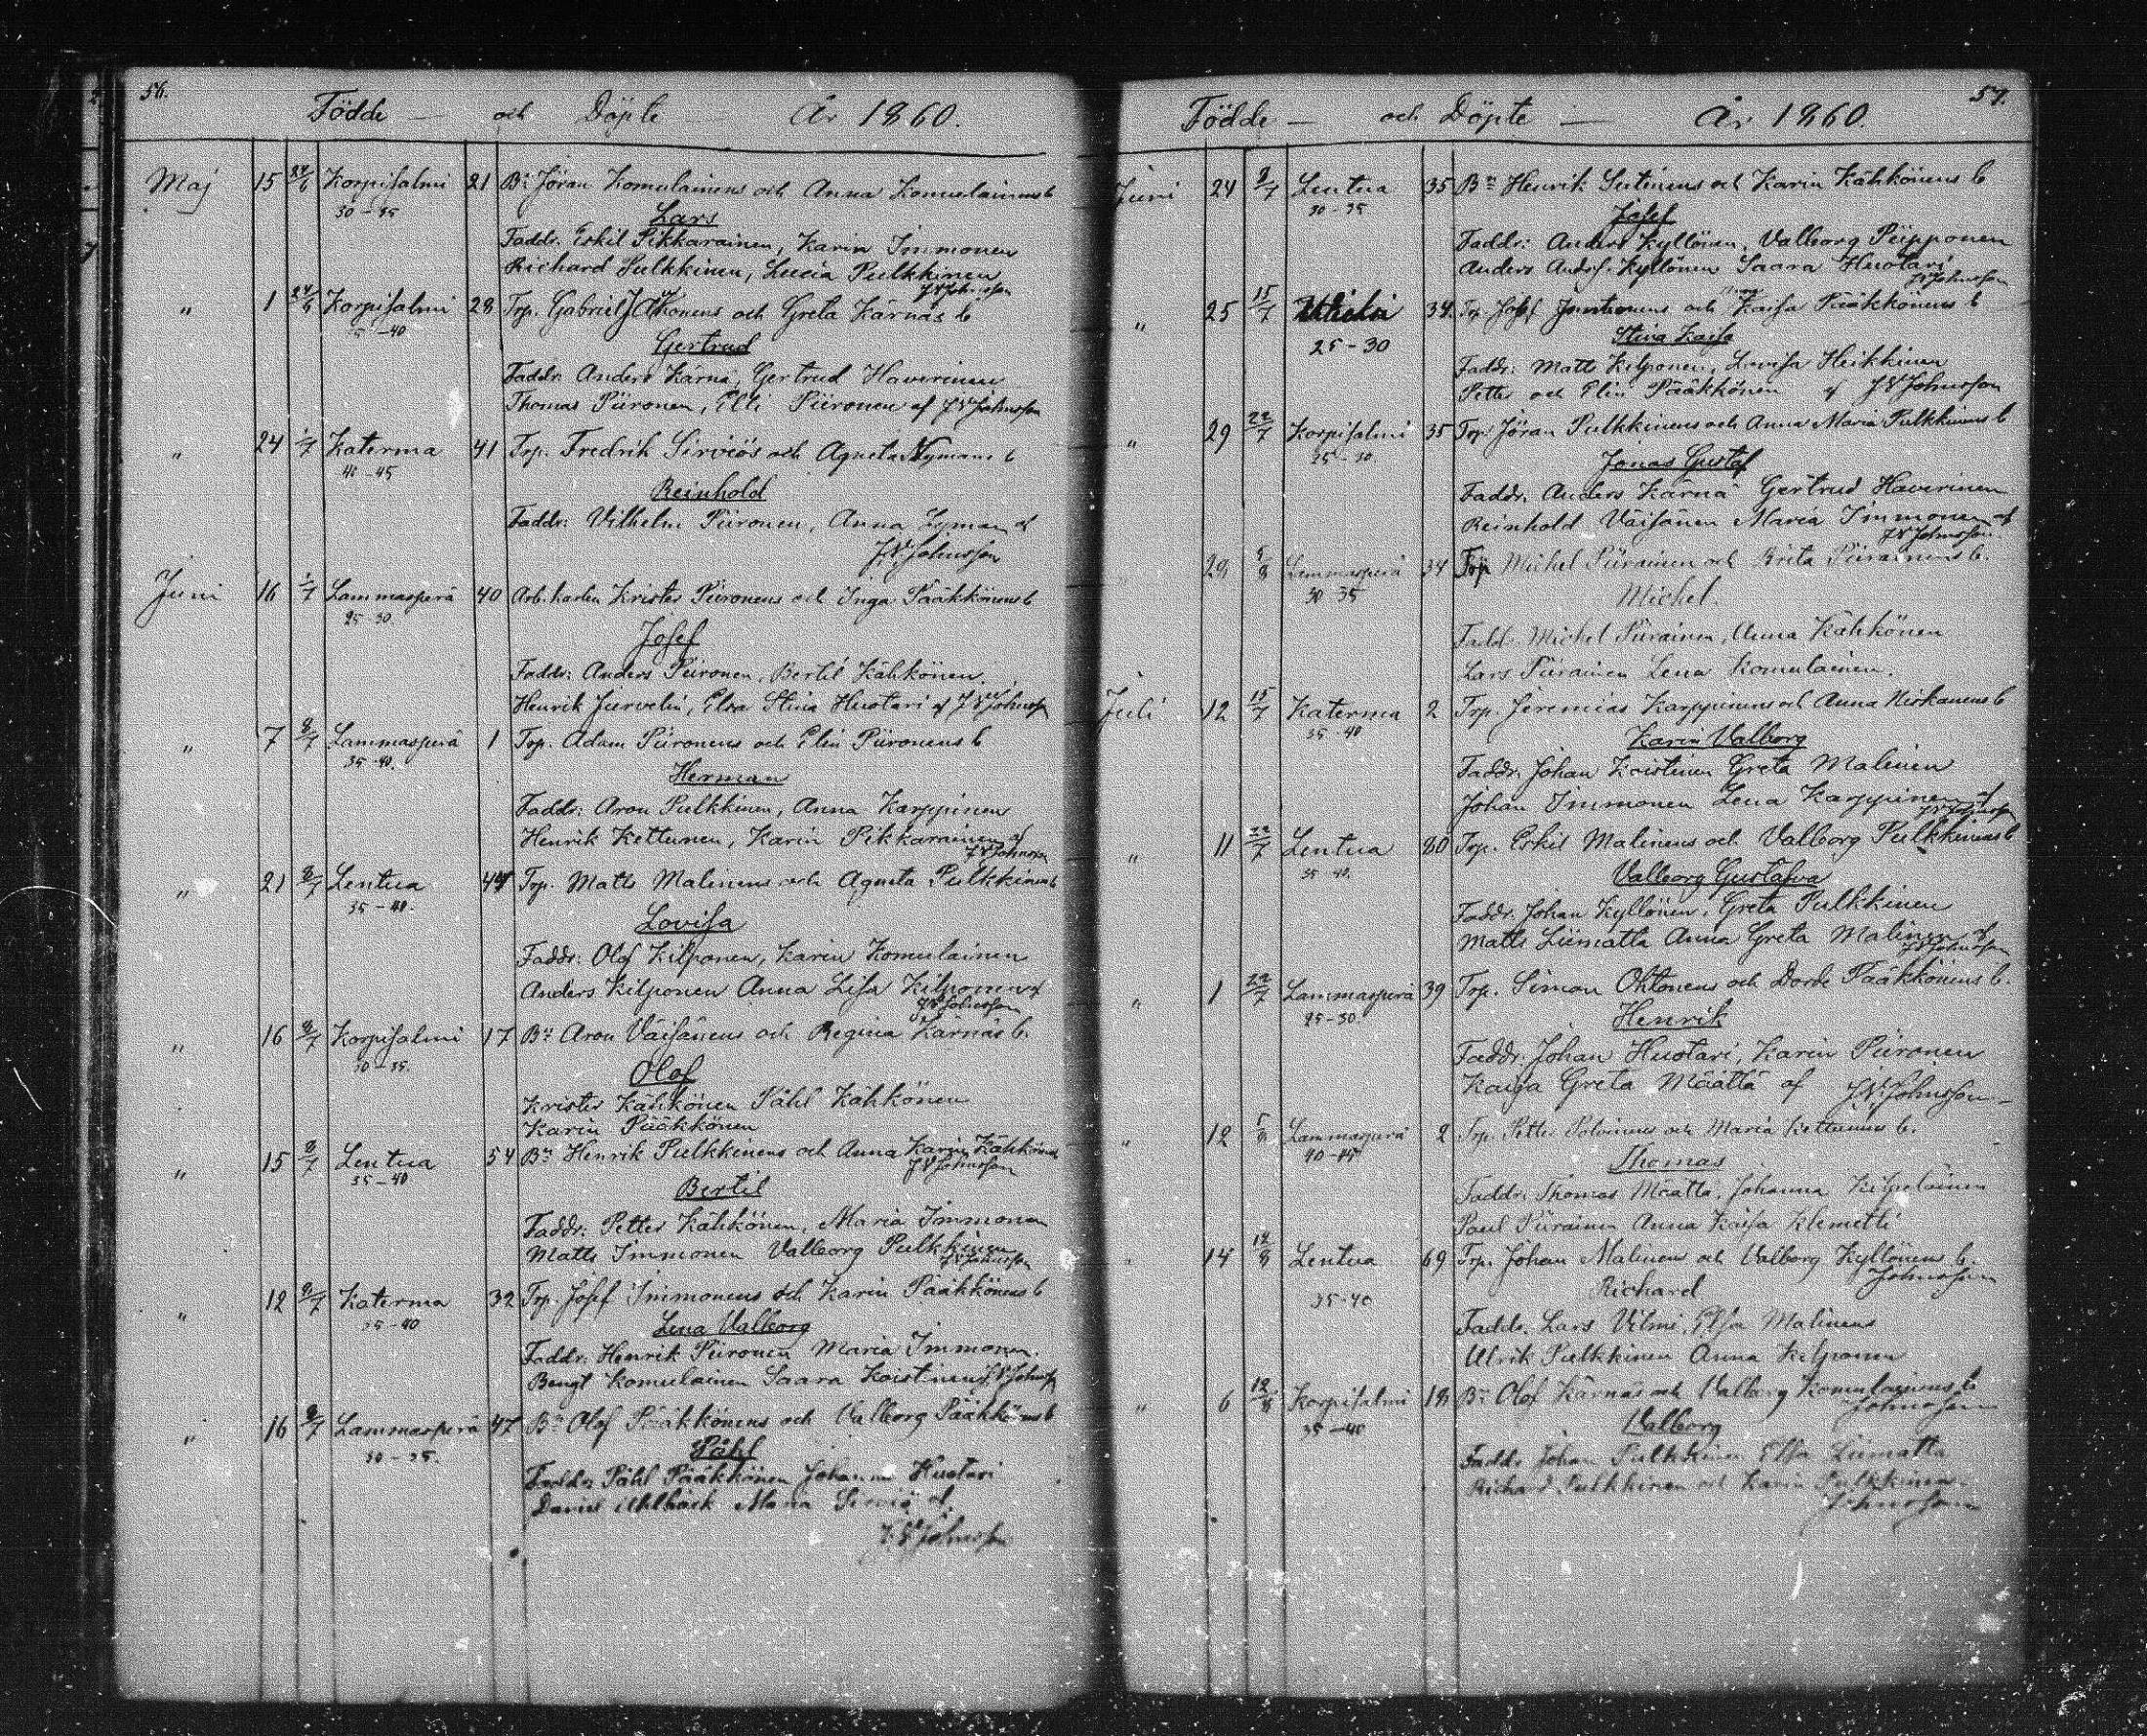 56.
Födde — och Döpte — År 1860.
Maj 15 24/6 Korpisalmi 21 Bn Jöran Komulainens och Anna Komulainens b
30-35
Lars
Faddr. Eskil Pikkarainen, Karin Immonen
Richard Pulkkinen, Lucia Pulkkinen
JVJohnsson
" 1 24/6 Korpisalmi 28 Trp. Gabriel och Greta Kärnäs b
35-40
Gertrud
Faddr. Anders Kärnä, Gertrud Haverinen
Thomas Piironen, Elli Piironen af JVJohnsson
" 24 1/7 Katerma 41 Trp. Fredrik Sirviös och Agneta Nymans b
40-45
Reinhold
Faddr: Vilhelm Piironen, Anna af
JVJohnsson
Juni 16 1/7 Lammasperä 40 Arb.karlen Krister Piironens och Inga Pääkkönens b
25-30.
Josef
Faddr: Anders Piironen, Bertil Kähkönen.
Henrik Juvelin, Elsa Stina Huotari af JVJohnssn
" 7 8/7 Lammasperä 1 Trp. Adam Piironens och Elin Piironens b
35-40.
Herman
Faddr: Aron Pulkkinen, Anna Karppinen
Henrik Kettunen, Karin Pikkarainen af
JVJohnssn
" 21 8/7 Lentua 44 Trp. Matts Malinens och Agneta Pulkkinens b
35-40.
Lovisa
Faddr: Olof Kilponen, Karin Komulainen
Anders Kilponen Anna Lisa Kilponen af
JVJohnsson
" 16 8/7 Korpisalmi 17 Bn Aron Väisänens och Regina Kärnäs b.
30-35.
Olof
Krister Kähkönen Påhl Kähkönen
Karin Pääkkönen
JVJohnsson
" 15 8/7 Lentua 54 Bn Henrik Pulkkinens och Anna Karin Kähkönens
35-40
Bertil
Faddr: Petter Kähkönen, Maria Immonen
Matts Immonen Valborg Pulkkinen
JVJohnsson
" 12 8/7 Katerma 32 Trp. Josef Immonens och Karin Pääkkönens b
35-40
Lena Valborg
Faddr: Henrik Piironen Maria Immonen.
Bengt Komulainen Saara Koistinen JVJohnss
" 16 8/7 Lammasperä 47 Bn Olof Pääkkönens och Valborg Pääkkönens b
30-35.
Påhl
Faddr: Påhl Pääkkönen Johanna Huotari
Daniel Ahlbäck Maria Sirviö af.
JVJohnsson
57.
Födde — och Döpte — År 1860.
Juni 24 2/7 Lentua 35 Bn Henrik Sutinens och Karin Kähkönens b
30-35
Josef
Faddr: Anders Kyllönen, Valborg Piipponen
Anders Andrs. Kyllönen Saara Huotari
JVJohnsson
" 25 15/7 34 Trp. Josef och Kaisa Pääkkönens b
25-30
Stina Kaisa
Faddr: Matts Kilponen, Lovisa Heikkinen
Petter och Elin Pääkkönen af JVJohnsson
" 29 22/7 Korpisalmi 35 Trp. Jöran Pulkkinens och Anna Maria Pulkkinens b
25-30
Jonas Gustaf
Faddr. Anders Kärnä Gertrud Haverinen
Reinhold Väisänen Maria Immonen af
JVJohnsson.
29 5/8 Lammasperä 34 Trp Michel Piirainen och Brita Piirainens b.
30 35
Michel.
Faddr. Michel Piirainen, Anna Kähkönen
Lars Piirainen Lena Komulainen.
Juli 12 15/7 Katerma 2 Trp. Jeremias Karppinens och Anna Niskanens b
35-40
Karin Valborg
Faddr. Johan Koistinen Greta Malinen
Johan Immonen Lena Karppinen af
JVJohnssn
" 11 22/7 Lentua 80 Trp. Eskil Malinens och Valborg Pulkkinens b
35-40.
Valborg Gustafva
Faddr. Johan Kyllönen, Greta Pulkkinen
Matts Liimatta Anna Greta Malinen af
JVJohnsson
" 1 22/7 Lammasperä 39 Trp. Simon Ohtonens och Dorde Pääkkönens b.
25-30.
Henrik
Faddr. Johan Huotari, Karin Piironen
Kaisa Greta Määttä af JVJohnsson
" 12 5/8 Lammasperä 2 Trp. Petter Polvinens och Maria Kettunens b.
40-45
Thomas
Faddr. Thomas Määttä, Johanna Kilpeläinen
Paul Piirainen Anna Kaisa Klemetti
" 14 12/8 Lentua 69 Trp. Johan Malinens och Valborg Kyllönens b.
Johnsson
35-40
Richard
Faddr. Lars Vilmi, Elsa Malinens
Ulrik Pulkkinen Anna Kilponen
" 6 12/8 Korpisalmi 18 Bn Olof Kärnäs och Valborg Komulainens b
Johnsson
35-40
Valborg
Faddr Johan Pulkkinen Elsa Liimatta
Richard Pulkkinen och Karin Pulkkinen
Johnsson